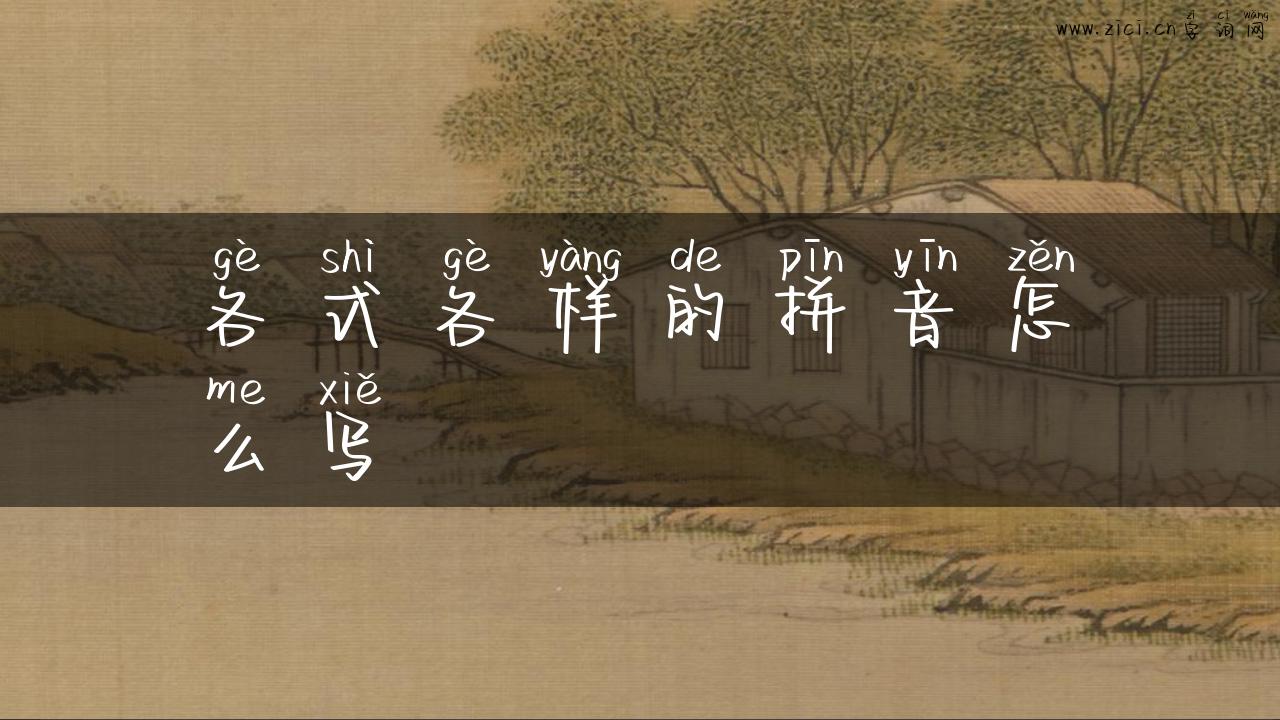 zì cí wǎng
www.zici.cn 字 词 网
gè shì gè yàng de pīn yīn zěn
各 式 各 样 的 拼 音 怎
me xiě
么 写